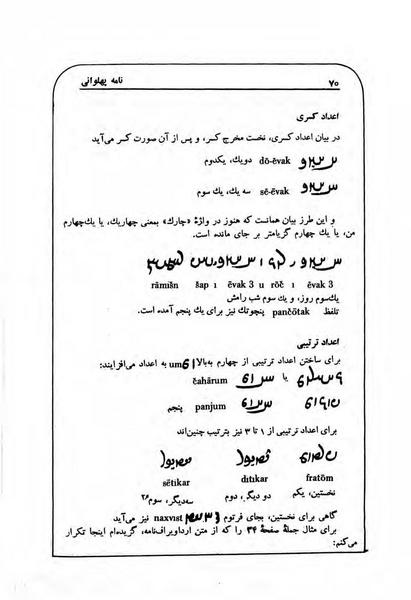 ۷۰ نامه پهلوانی
اعداد کسری
در بیان اعداد کسری، نخست مخرج کسر، و پس از آن صورت کسر می‌آید
dō-ēvak دویك، یکدوم
sē-ēvak سه یك، یك سوم
و این طرز بیان همانست که هنوز در واژهٔ «چارك» بمعنی چهاریك، یا یك‌چهارم
من، یا یك چهارم گریبامتر بر جای مانده است.
rāmišn šap ı ēvak 3 u rōč ı ēvak 3
یك‌سوم روز، و یك سوم شب رامش
تلفظ pančōtak پنجوتك نیز برای یك پنجم آمده است.
اعداد ترتیبی
برای ساختن اعداد ترتیبی از چهارم به‌بالا um به اعداد می‌افزایند:
یا čahārum
panjum پنجم
برای اعداد ترتیبی از ۱ تا ۳ نیز بترتیب چنین‌اند
sētikar dıtıkar fratōm
نخستین، یکم دو دیگر، دوم سه‌دیگر، سوم۲۸
گاهی برای نخستین، بجای فرتوم naxvıst نیز می‌آید
برای مثال جملهٔ صفحهٔ ۳۴ را که از متن ارداویراف‌نامه، گزیده‌ام اینجا تکرار
می‌کنم: